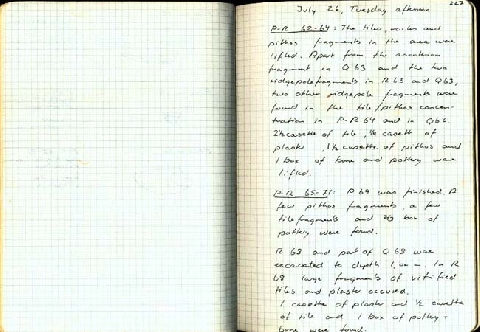 July 26, Tuesday afternoon
227
P-R 62-64: The tiles, and
pithos fragments in the area were
lifted. Apart from the
fragment in Q 63 and the two
ridgepole fragments in R 63 and Q 63,
two other ridgepole fragments were
found in the tile/pithos concen-
tration in P-R 64 and in
2½ casette of tile, ½ casett of
plaster, 1½ casette of pithos and
1 box of bone and pottery were
lifted.
65-71: P 69 was finished. A
few pithos fragments, a few
tile fragments and box of
pottery were found.
R 68 and part of Q 68 were
excavated to depth in R
68 large fragments of vitrified
tiles and plaster occured.
1 casette of plaster and ½ casette
of tile and 1 box of pottery-
bone were found.